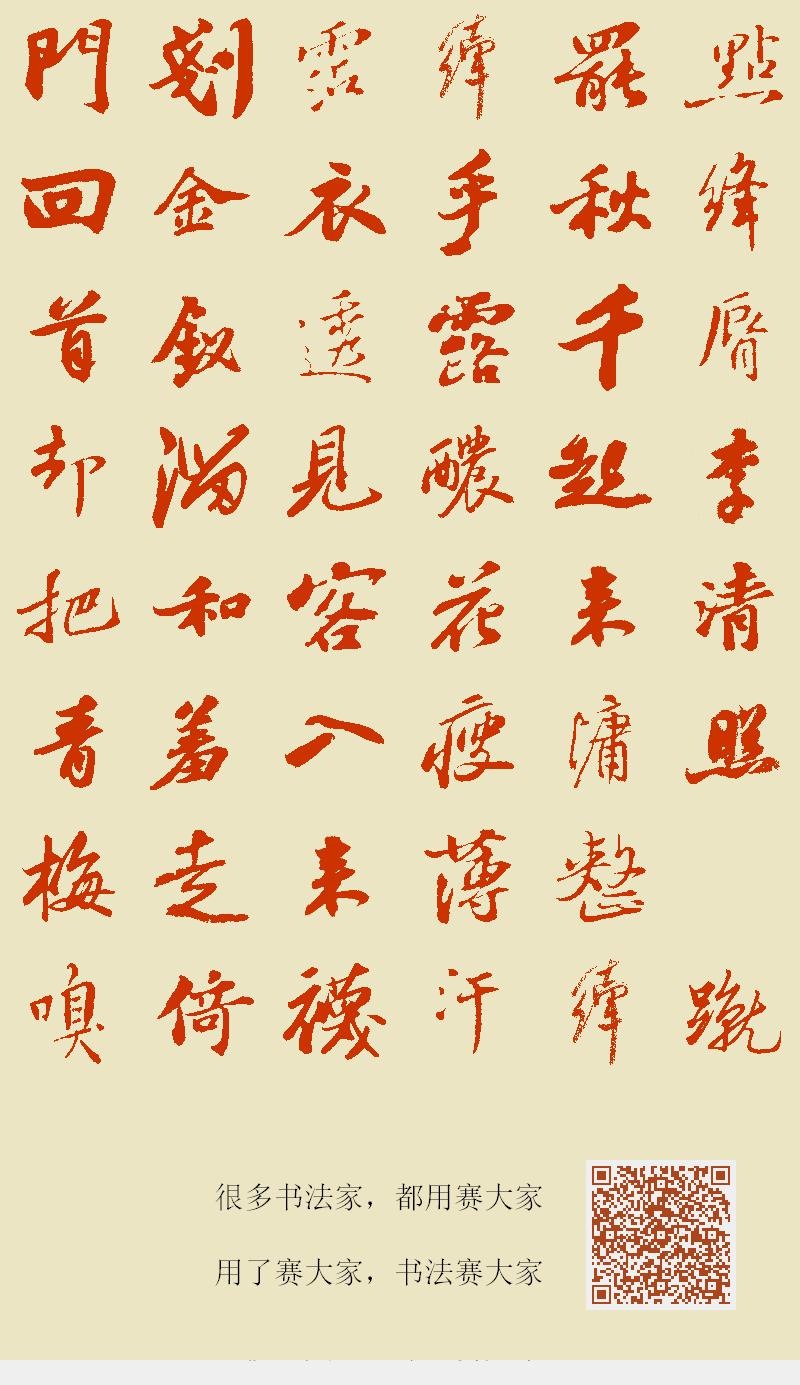 點絳脣李清照 蹴
罷秋千起来慵整縴
縴手露醲花瘦薄汗
霑衣透見客入来襪
剗金釵溜和羞走倚
門回首却把青梅嗅
很多书法家，都用赛大家
用了赛大家，书法赛大家